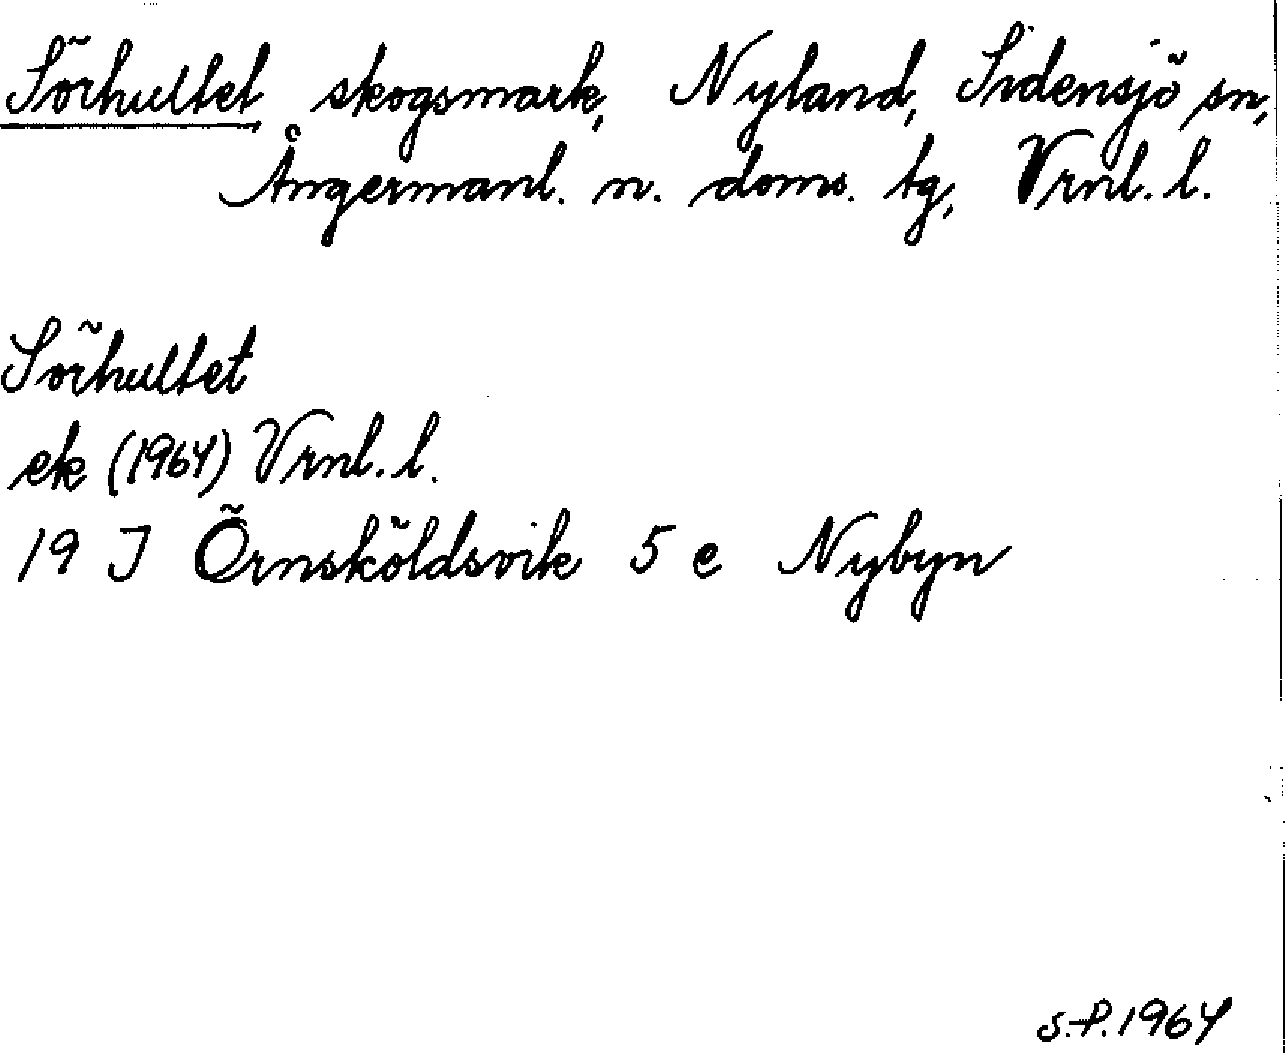 Sörhultet skogsmark, Nyland, Sidensjö sn,
Ångermanl. n. doms. tg, Vrnl. l.
Sörhultet
ek (1964) Vrnl. l.
19 J Örnsköldsvik 5 e Nybyn
S.P. 1964